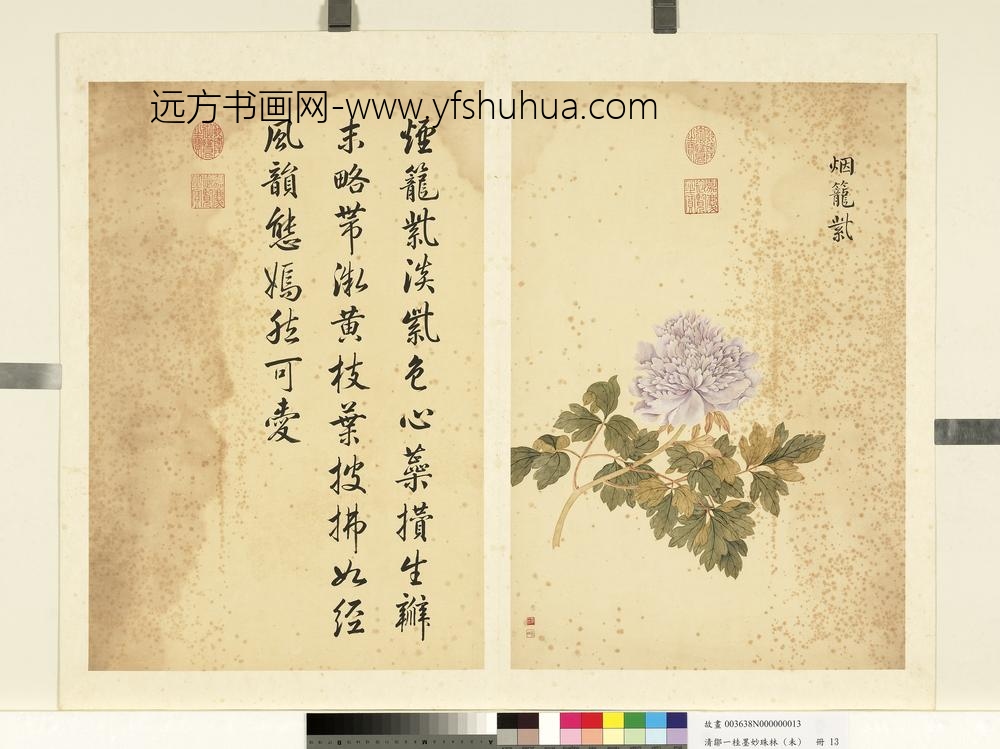 远方书画网-www.yfshuhua.com
烟籠紫
煙籠紫淡紫色心蘂攢生瓣
末略带微黄枝葉披拂如经
風韻態嫣然可愛
故畫 003638N000000013
清鄒一桂墨妙珠林(未) 冊 13